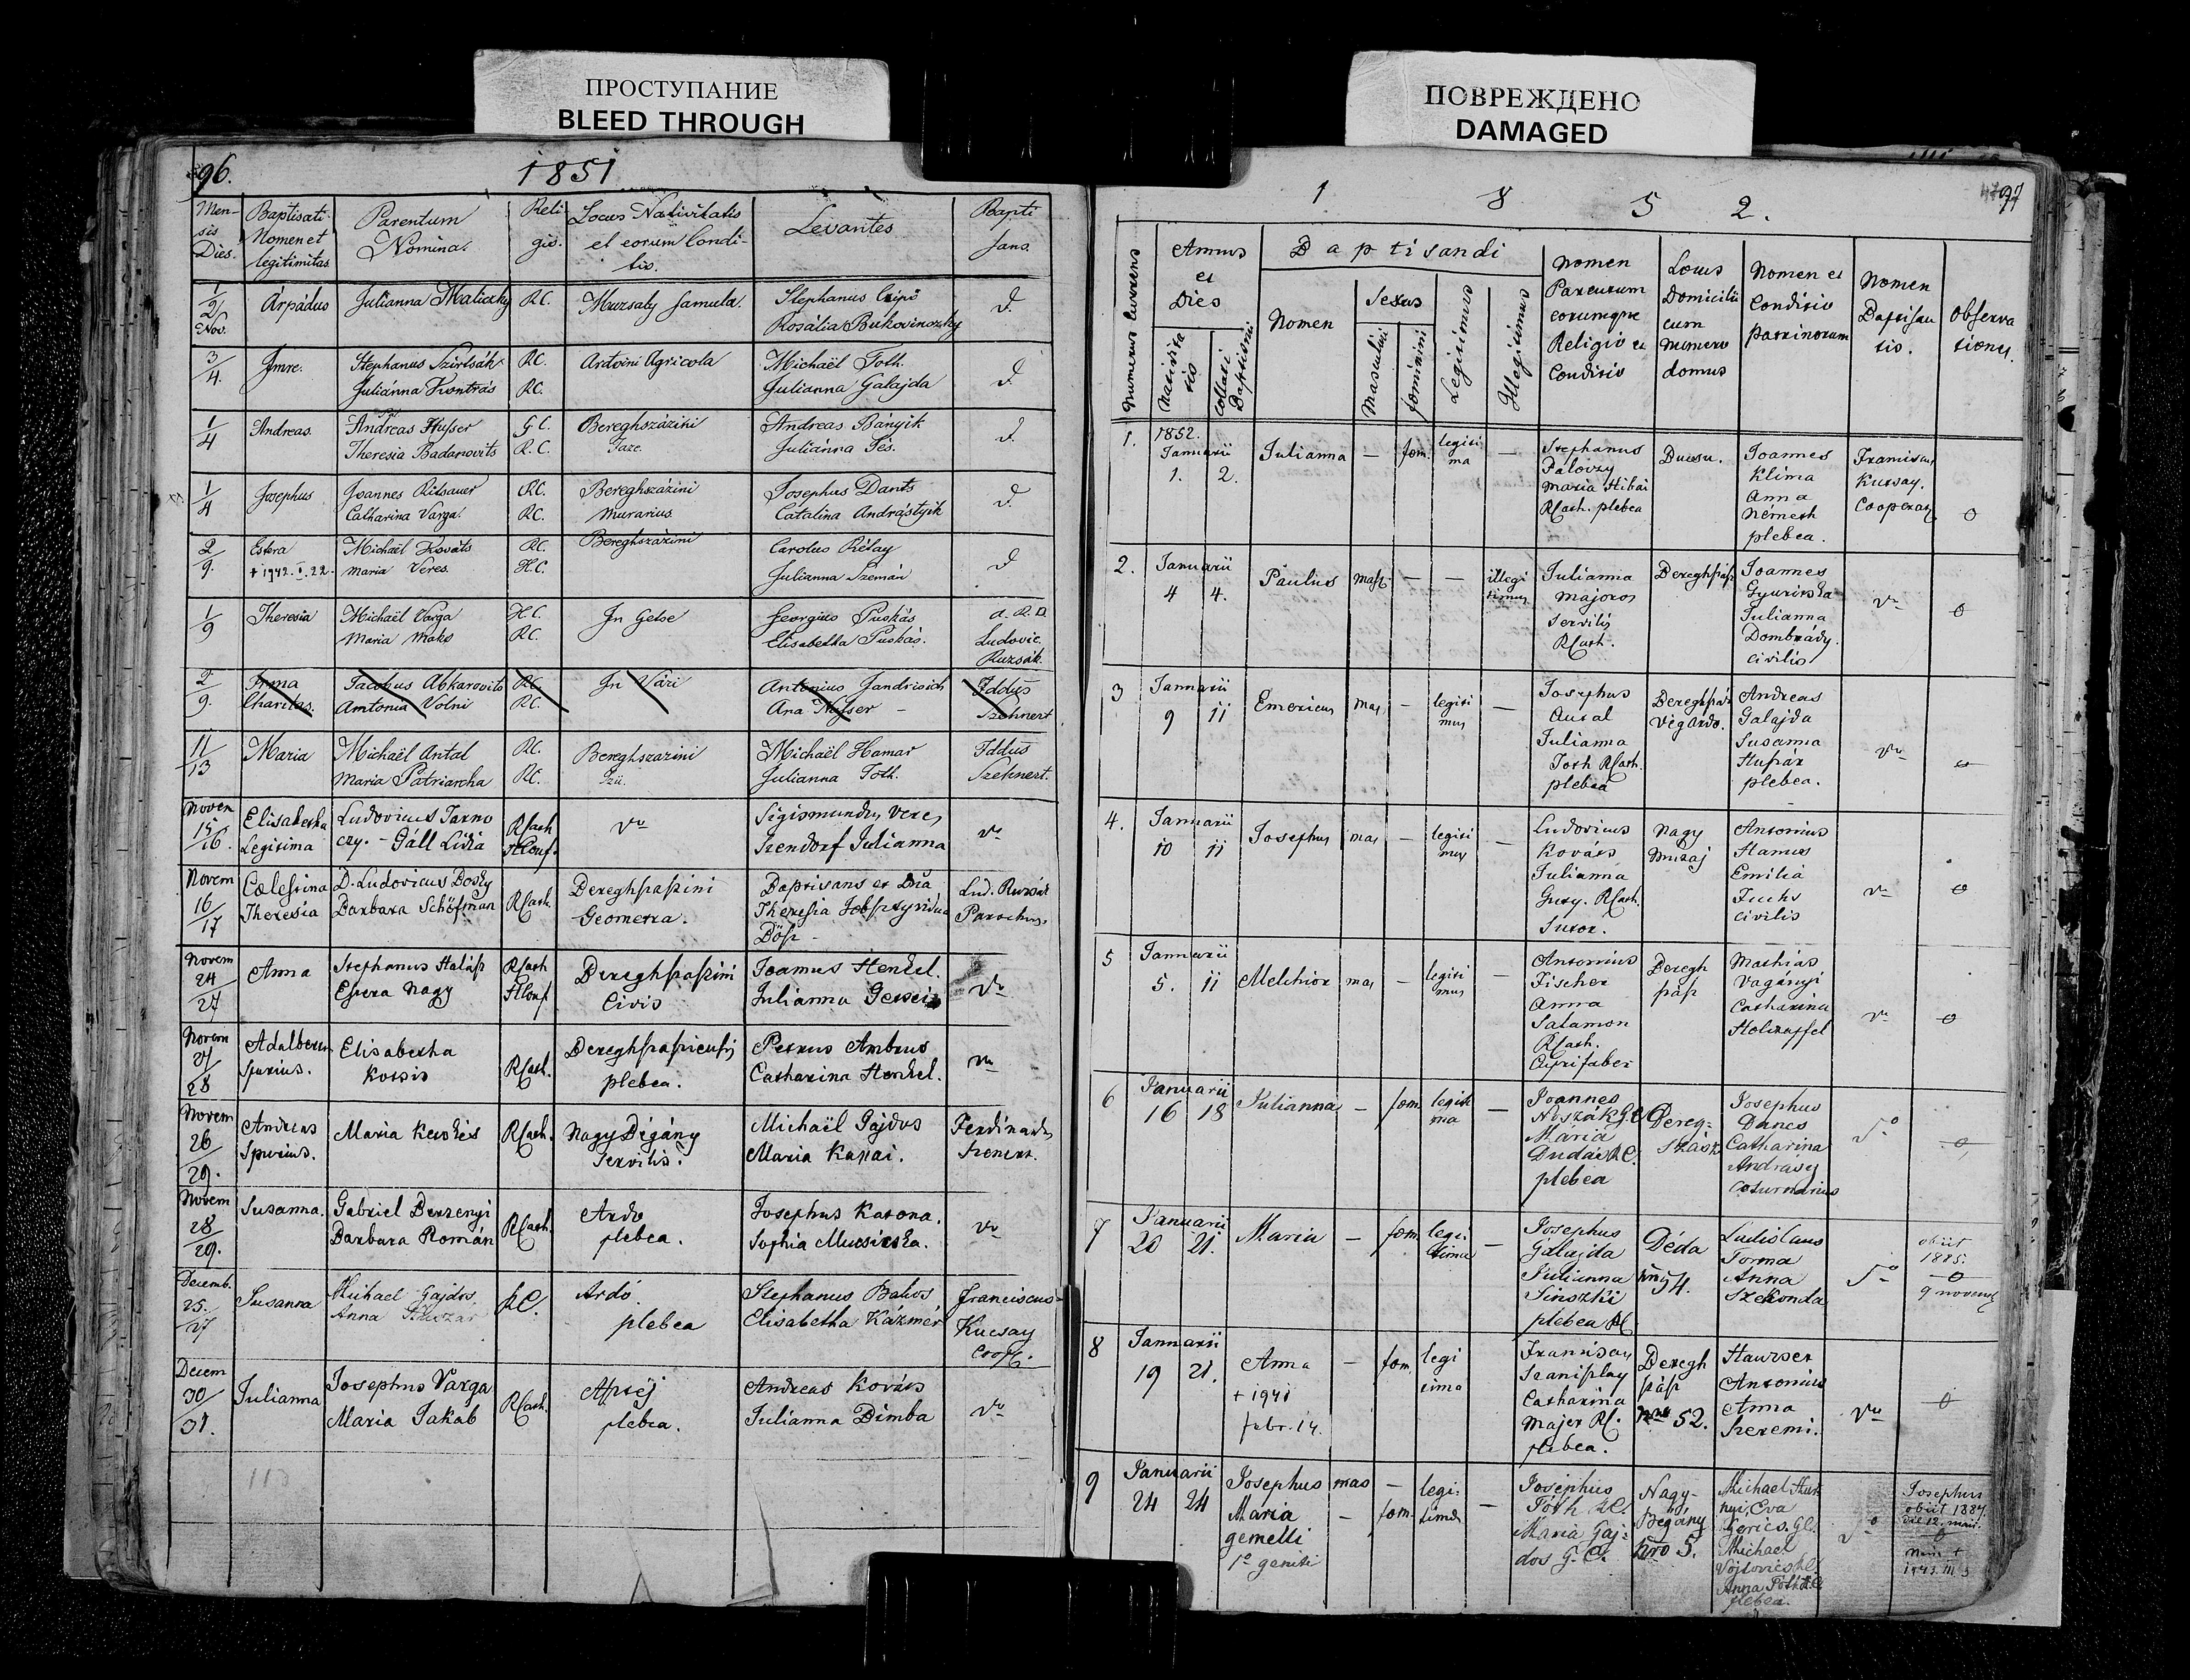 ПРОСТУПАНИЕ
BLEED THROUGH
ПОВРЕЖДЕНО
DAMAGED
96.
1851
Men-
sis
Dies.
Baptisati
Nomen et
legitimitas.
Parentum
Nomina.
Reli
gio.
Locus Nativitatis
et eorum Condi-
tio.
Levantes
Bapti
sans.
1/2
Nov.
Árpádus
Julianna Maliczky
R.C.
Muzsaly famula.
Stephanus
Rosália Bukovinszky
3/4.
Imre.
Stephanus Szirtsák
Juliánna Kontrás
R.C.
R.C.
Ardoini Agricola
Michaël Toth.
Julianna Galajda
1/4
Andreas.
Andreas Husser
Theresia Badarovits
G.C.
R.C.
Bereghszázini
Andreas Bányik
Juliánna
1/4
Josephus
Joannes Ritsauer
Catharina Varga
R.C.
R.C.
Bereghszázini
Murarius
Josephus Dants
Catalina Andrástyik
2/9.
Estera
+ 1942. I. 22.
Michaël Kováts
Maria Veres.
R.C.
H.C.
Bereghszázini
Carolus Rétay
Julianna Szemán
1/9
Theresia
Michaël Varga
Maria Makó
H.C.
R.C.
In Getse
Georgius Puskás
Elisabetha Puskás.
A. R. D.
Ludovic.
Ruzsák.
2/9.
Irma
Charitas.
Jacobus Abkarovits
Antonia Volni
R.C.
R.C.
In Vári
Antonius Jandrisich
Ana
Iddus
Szehnert
11/13
Maria
Michaël Antal
Maria Patriarcha
R.C.
R.C.
Bereghszázini
Michaël Hamar
Julianna Toth.
Iddus
Szehnert.
Novem
15/16.
Elisabetha
Legitima
Ludovicus Tarno
czy. - Gáll Lidia
RCath
HConf.
Sigismundus Veres
Szendorf Julianna
Novem
16/17
Cælestina
Theresia
D. Ludovicus Bosky
Barbara Schöfman
RCath.
Bereghszászini
Geometra.
Baptisans et Dna
Theresia
Lud. Ruzsák
Parochus.
Novem
24/27
Anna
Stephanus Halász
Esztera Nagy
RCath
HConf
Bereghszászini
Civis
Joannes Henkel.
Julianna
Novem
27/28
Adalbertus
Spurius.
Elisabetha
Kotsis
RCath.
Bereghszásziensis
plebea.
Petrus Ambrus
Catharina Henkel.
Novem
26/29.
Andreas
Spurius.
Maria Kecskés
RCath.
Nagy Bégány
Servilis.
Michaël Gajdos
Maria Kassai.
Ferdinandus
Szenert.
Novem
28/29.
Susanna.
Gabriel Berzenyi
Barbara Román
RCath.
Ardo
plebea.
Josephus Katona.
Sophia Mucsicska.
Decemb.
25./27
Susanna
Michael Gajdos
Anna Huszár
R.C.
Ardó
plebea
Stephanus Bakos
Elisabetha Kázmér
Franciscus
Kucsay
Coop.
Decem
30/31.
Julianna
Josephus Varga
Maria Jakab
RCath.
Asztéj
plebea.
Andreas Kováts
Julianna Dimba
113
97
1 8 5 2.
Numerus currens
Annus
et
Dies
nativita
tis
collati
Baptismi
Baptisandi
Nomen
Sexus
Masculini
feminini
Legitimus
Illegitimus
Nomen
Parentum
eorumque
Religio et
Conditio
Locus
Domicilii
cum
numero
domus
Nomen et
Conditio
patrinorum
Nomen
Baptisan
tis.
Observa
tiones.
1.
1852.
Januarii
1. 2.
Julianna
—
fœm.
legiti
ma
—
Stephanus
Pálóczy
Maria Hibai
RCath. plebea
Bucsu.
Joannes
Klima
Anna
Németh
plebea.
Franciscus
Kucsay.
Cooperator
2.
Januarii
4 4.
Paulus
—
—
illegi
timus
Julianna
Majoros
Servilis
RCath.
Bereghszász
Joannes
Gyurioska
Julianna
Dombrády.
civilis
3
Januarii
9 11
Emericus
mas
—
legiti
mus
—
Josephus
Antal
Julianna
Toth RCath.
plebea
Bereghszász
Végardo.
Andreas
Galajda
Susanna
Huszár
plebea.
4.
Januarii
10 11
Josephus
mas
—
legiti
mus
—
Ludovicus
Kováts
Julianna
Guczy. RCath.
Sutor.
Nagy
Muzsaj
Antonius
Hamus
Emilia
Fuchs
civilis
5
Januarii
5. 11
Melchior
mas
—
legiti
mus
—
Antonius
Fischer
Anna
Salamon
RCath.
Aurifaber
Beregh
szász
Mathias
Vagányi
Catharina
Holczapfel
6
Januarii
16 18
Julianna
—
fœm
legiti
ma
—
Joannes
G.C.
Mária
Dudás R.C.
plebea
Bereg-
szász
Josephus
Dancs
Catharina
Andrásy
Coturnarius
7
Januarii
20 21.
Maria
—
fœm.
legi-
tima
—
Josephus
Galajda
Julianna
Sinszki
plebea RC.
Déda
nro 54.
Ladislaus
Torma
Anna
Szekonda
obiit
1885.
9 novemb
8
Januarii
19 21.
Anna
+ 1941
febr. 14.
—
fœm
legi
tima
Franciscus
Staniszlay
Catharina
Majer RC.
plebea.
Beregh
szász
nro 52.
Hauzser
Antonius
Anna
Szeremi.
9
Januarii
24 24
Josephus
Maria
gemelli
1o geniti
mas
—
—
fœm.
legi-
timi
—
Josephus
Tóth R.C.
Maria Gaj-
dos G.C.
Nagy-
Begány
nro 5.
Michael
Eva
Gerics. GC.
Michael
Vojtovics R.C.
Anna Tóth R.C.
plebea.
Josephus
obiit 1887.
die 12. maii.